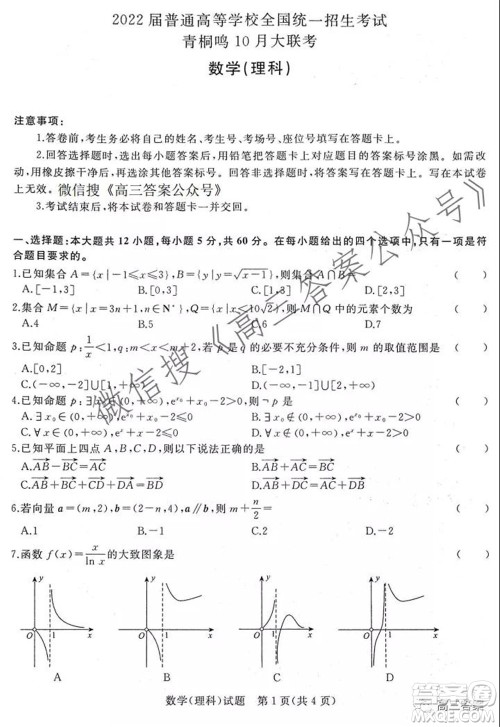 2022届普通高等学校全国统一招生考试
青桐鸣10月大联考
数学(理科)
注意事项:
1.答卷前,考生务必将自己的姓名、考生号、考场号、座位号填写在答题卡上。
2.回答选择题时,选出每小题答案后,用铅笔把答题卡上对应题目的答案标号涂黑。如需改
动,用橡皮擦干净后,再选涂其他答案标号。回答非选择题时,将答案写在答题卡上。写在本试卷
上无效。微信搜《高三答案公众号》
3.考试结束后,将本试卷和答题卡一并交回。
一、选择题:本大题共12小题,每小题5分,共60分。在每小题给出的四个选项中,只有一项是符
合题目要求的。
1.已知集合A={x|-1≤x≤3},B={y|y=√(x-1)},则集合A∩B= ( )
A.[-1,3] B.[0,3] C.[1,3] D.[2,3]
2.集合M={x|x=3n+1,n∈N*},Q={x| },则M∩Q中的元素个数为 ( )
A.4 B.5 C.6 D.7
3.已知命题p:1/x<1,q:m<x<m+2,若p是q的必要不充分条件,则m的取值范围是 ( )
A.[0,2] B.[-2,1]
C.(-∞,-2]∪[1,+∞) D.(-∞,-2]∪[0,+∞)
4.已知命题p: (0,+∞),eˣ+x₀-2>0,则¬p是 ( )
A.∃x₀∈(0,+∞),eˣ⁰+x₀-2≤0
C.∀x∈(0,+∞),eˣ+x-2≤0 D.∀x∈ ,eˣ+x-2≤0
5.已知平面上四点A,B,C,D,则以下说法正确的是 ( )
A.AB-BC=AC B.AB-AC=BC
C.AB+AC+CD+DA=BD D.AB+CD+DA=BD
6.若向量a=(m,2),b=(2-n,4),a∥b,则m+n/2= ( )
A.1 B.-1 C.0 D.-2
7.函数f(x)=x/ln x的大致图象是 ( )
y
O
1
x
A
y
O
1
x
B
y
O
1
x
C
y
O
1
x
D
数学(理科)试题 第1页(共4页)
微信搜《高三答案公众号》
高三答案